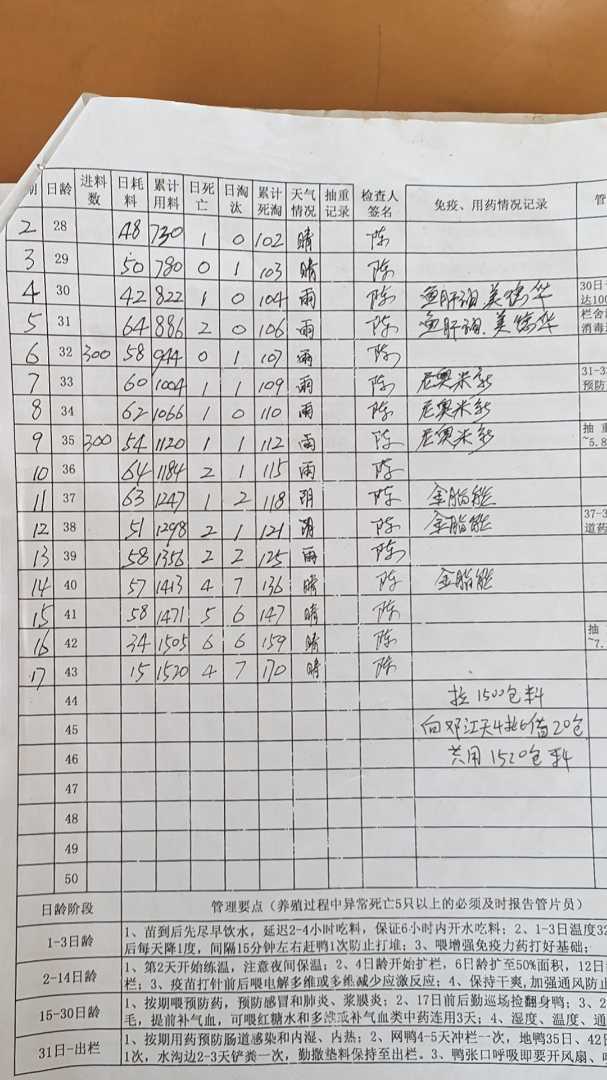 期 日龄 进料数 日耗料 累计用料 日死亡 日淘汰 累计死淘 天气情况 抽重记录 检查人签名 免疫、用药情况记录 管
2 28 48 730 1 0 102 晴 陈
3 29 50 780 0 1 103 晴 陈
4 30 42 822 1 0 104 雨 陈 鱼肝油 美 华 30日 达100
5 31 64 886 2 0 106 雨 陈 鱼肝油.美 华 栏舍 消毒
6 32 300 58 944 0 1 107 雨 陈
7 33 60 1004 1 1 109 雨 陈 尼奥米新 31-3 预防
8 34 62 1066 1 0 110 雨 陈 尼奥米新
9 35 300 54 1120 1 1 112 雨 陈 尼奥米新 抽 重 ~5.8
10 36 64 1184 2 1 115 雨 陈
11 37 63 1247 1 2 118 阴 陈 金脂能
12 38 51 1298 2 1 121 阴 陈 金脂能 37-3 道药
13 39 58 1356 2 2 125 雨 陈
14 40 57 1413 4 7 136 晴 陈 金脂能
15 41 58 1471 5 6 147 晴 陈
16 42 34 1505 6 6 159 晴 陈 抽 ~7.
17 43 15 1520 4 7 170 晴 陈
44 拉1500包料
45 向邓江天4批借20包
46 共用1520包料
47
48
49
50
日龄阶段 管理要点（养殖过程中异常死亡5只以上的必须及时报告管片员）
1-3日龄 1、苗到后先尽早饮水，延迟2-4小时吃料，保证6小时内开水吃料；2、1-3日温度32
后每天降1度，间隔15分钟左右赶鸭1次防止打堆；3、喂增强免疫力药打好基础；
2-14日龄 1、第2天开始练温，注意夜间保温；2、4日龄开始扩栏，6日龄扩至50%面积，12日
栏；3、疫苗打针前后喂电解多维或多维减少应激反应；4、保持干爽,加强通风防止
15-30日龄 1、按期喂预防药，预防感冒和肺炎、浆膜炎；2、17日前后勤巡场捡翻身鸭；3、2
毛，提前补气血，可喂红糖水和多维或补气血类中药连用3天；4、湿度、温度、通
31日-出栏 1、按期用药预防肠道感染和内湿、内热；2、网鸭4-5天冲栏一次，地鸭35日、42日
1次，水沟边2-3天铲粪一次，勤撒垫料保持至出栏。3、鸭张口呼吸即要开风扇、